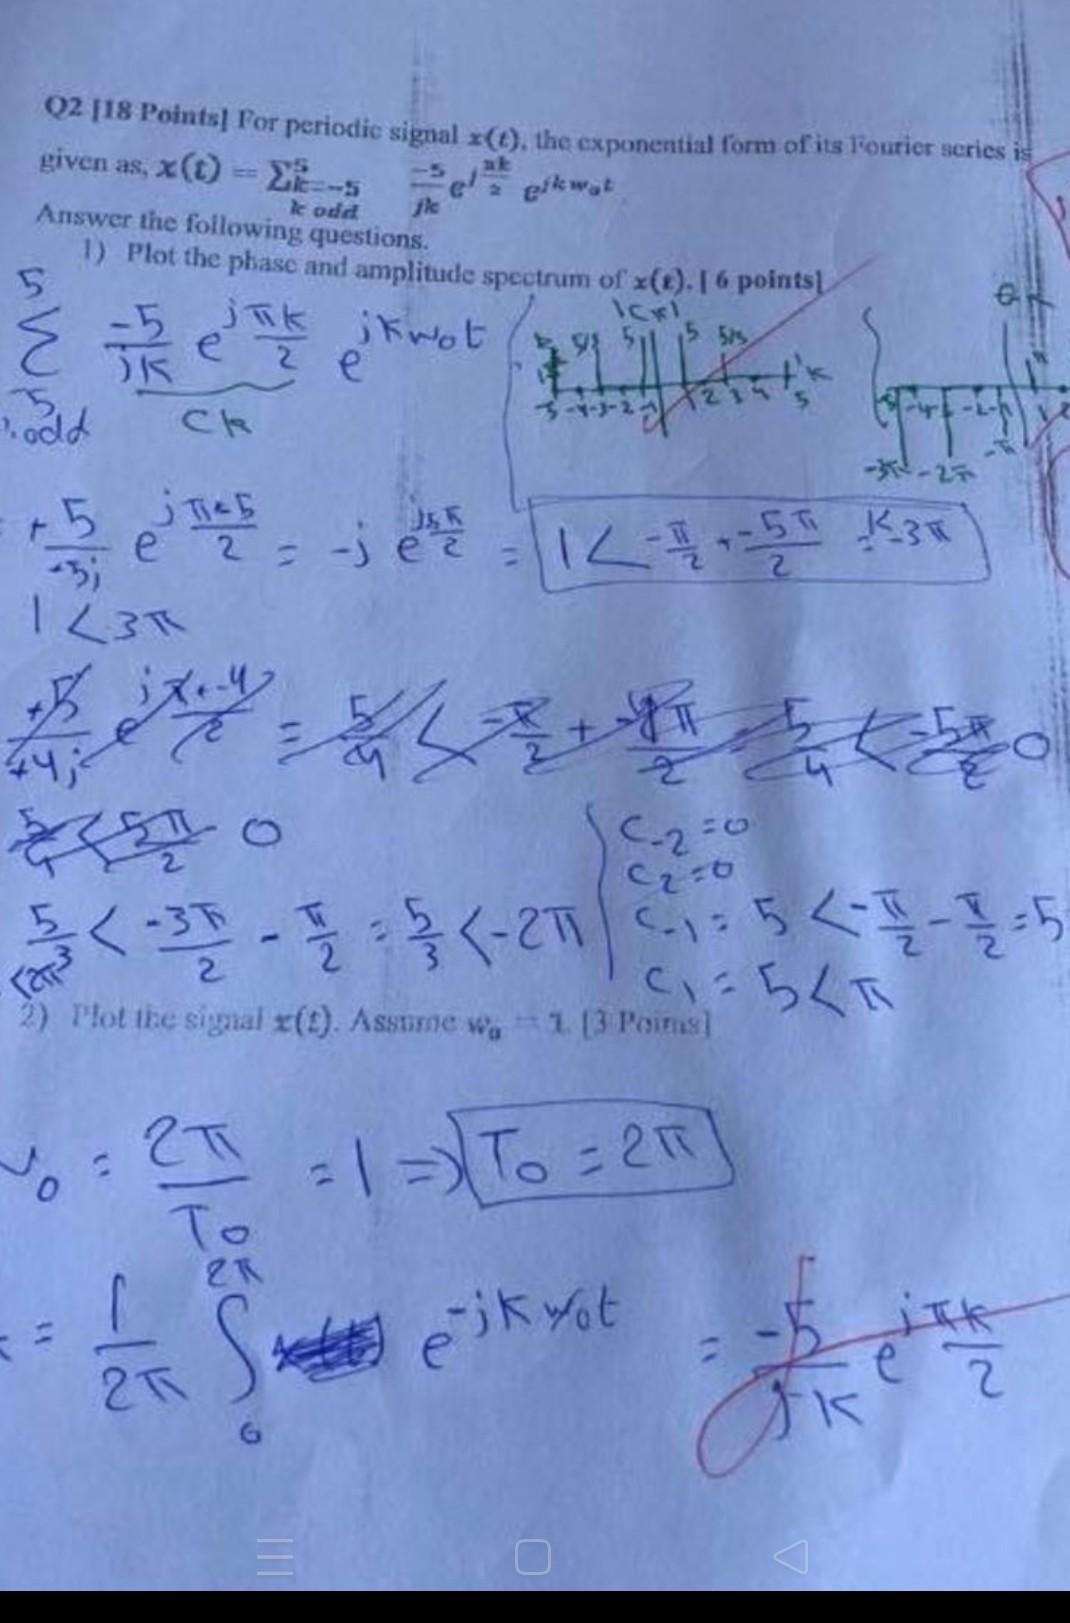 Q2 [18 Points] For periodic signal x(t), the exponential form of its Fourier series is
given as, x(t) = Σ⁵ₖ₌₋₅ -5/jk e^(j πk/2) e^(jkw₀t)
k odd
Answer the following questions.
1) Plot the phase and amplitude spectrum of x(t). [ 6 points]
5 Σ -5/jk e^(jπk/2) e^(jkw₀t)
odd
Ck
|Cx|
5/3 5 5 5/3
-5 -4 -3 -2 -1 2 3 4 5 k
-4 -2 -1
-3π -2π -π
+5/-5j e^(jπ·5/2) = -j e^(j5π/2) = 1 < -π/2 + -5π/2 = -3π
1 < 3π
0
0
5/3 < -3π/2 - π/2 = 5/3 < -2π
C-2 = 0
C2 = 0
C-1 = 5 < -π/2 - π/2 = 5
C1 = 5 < π
2) Plot the signal x(t). Assume w₀ = 1. [3 Points]
= 2π/T0 = 1 => T0 = 2π
= 1/2π ∫ 2π 0 e^(-jkw₀t) = -5/jk e^(jπk/2)